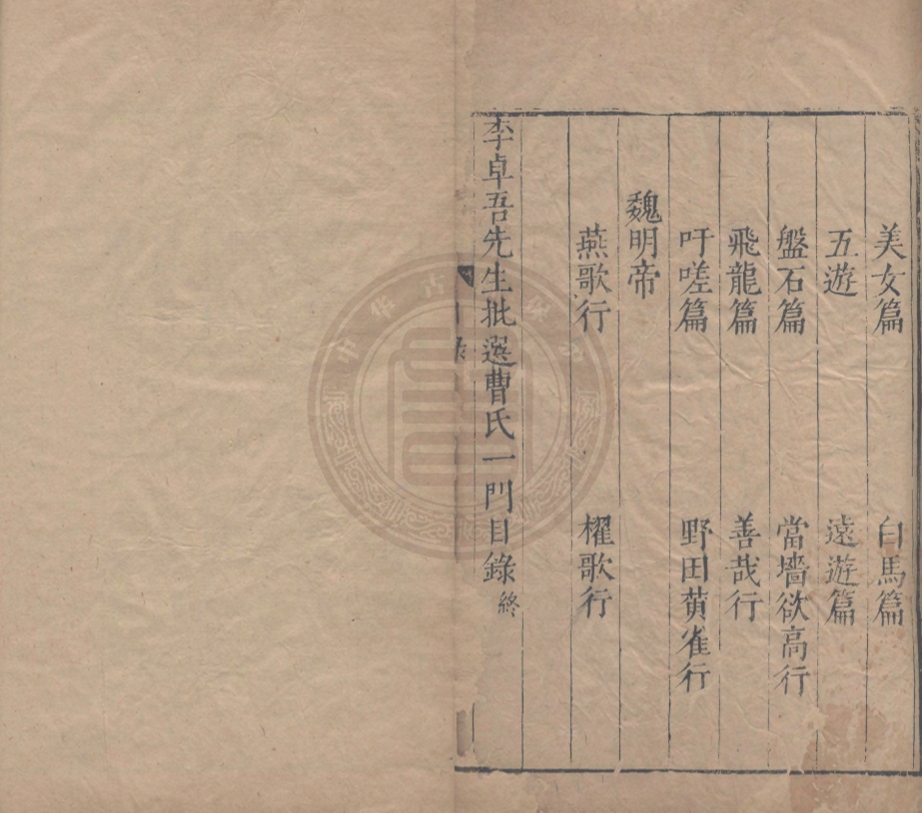 美女篇　白馬篇
五遊　遠遊篇
盤石篇　當墻欲高行
飛龍篇　善哉行
吁嗟篇　野田黃雀行
魏明帝
燕歌行　櫂歌行
李卓吾先生批選曹氏一門目錄終